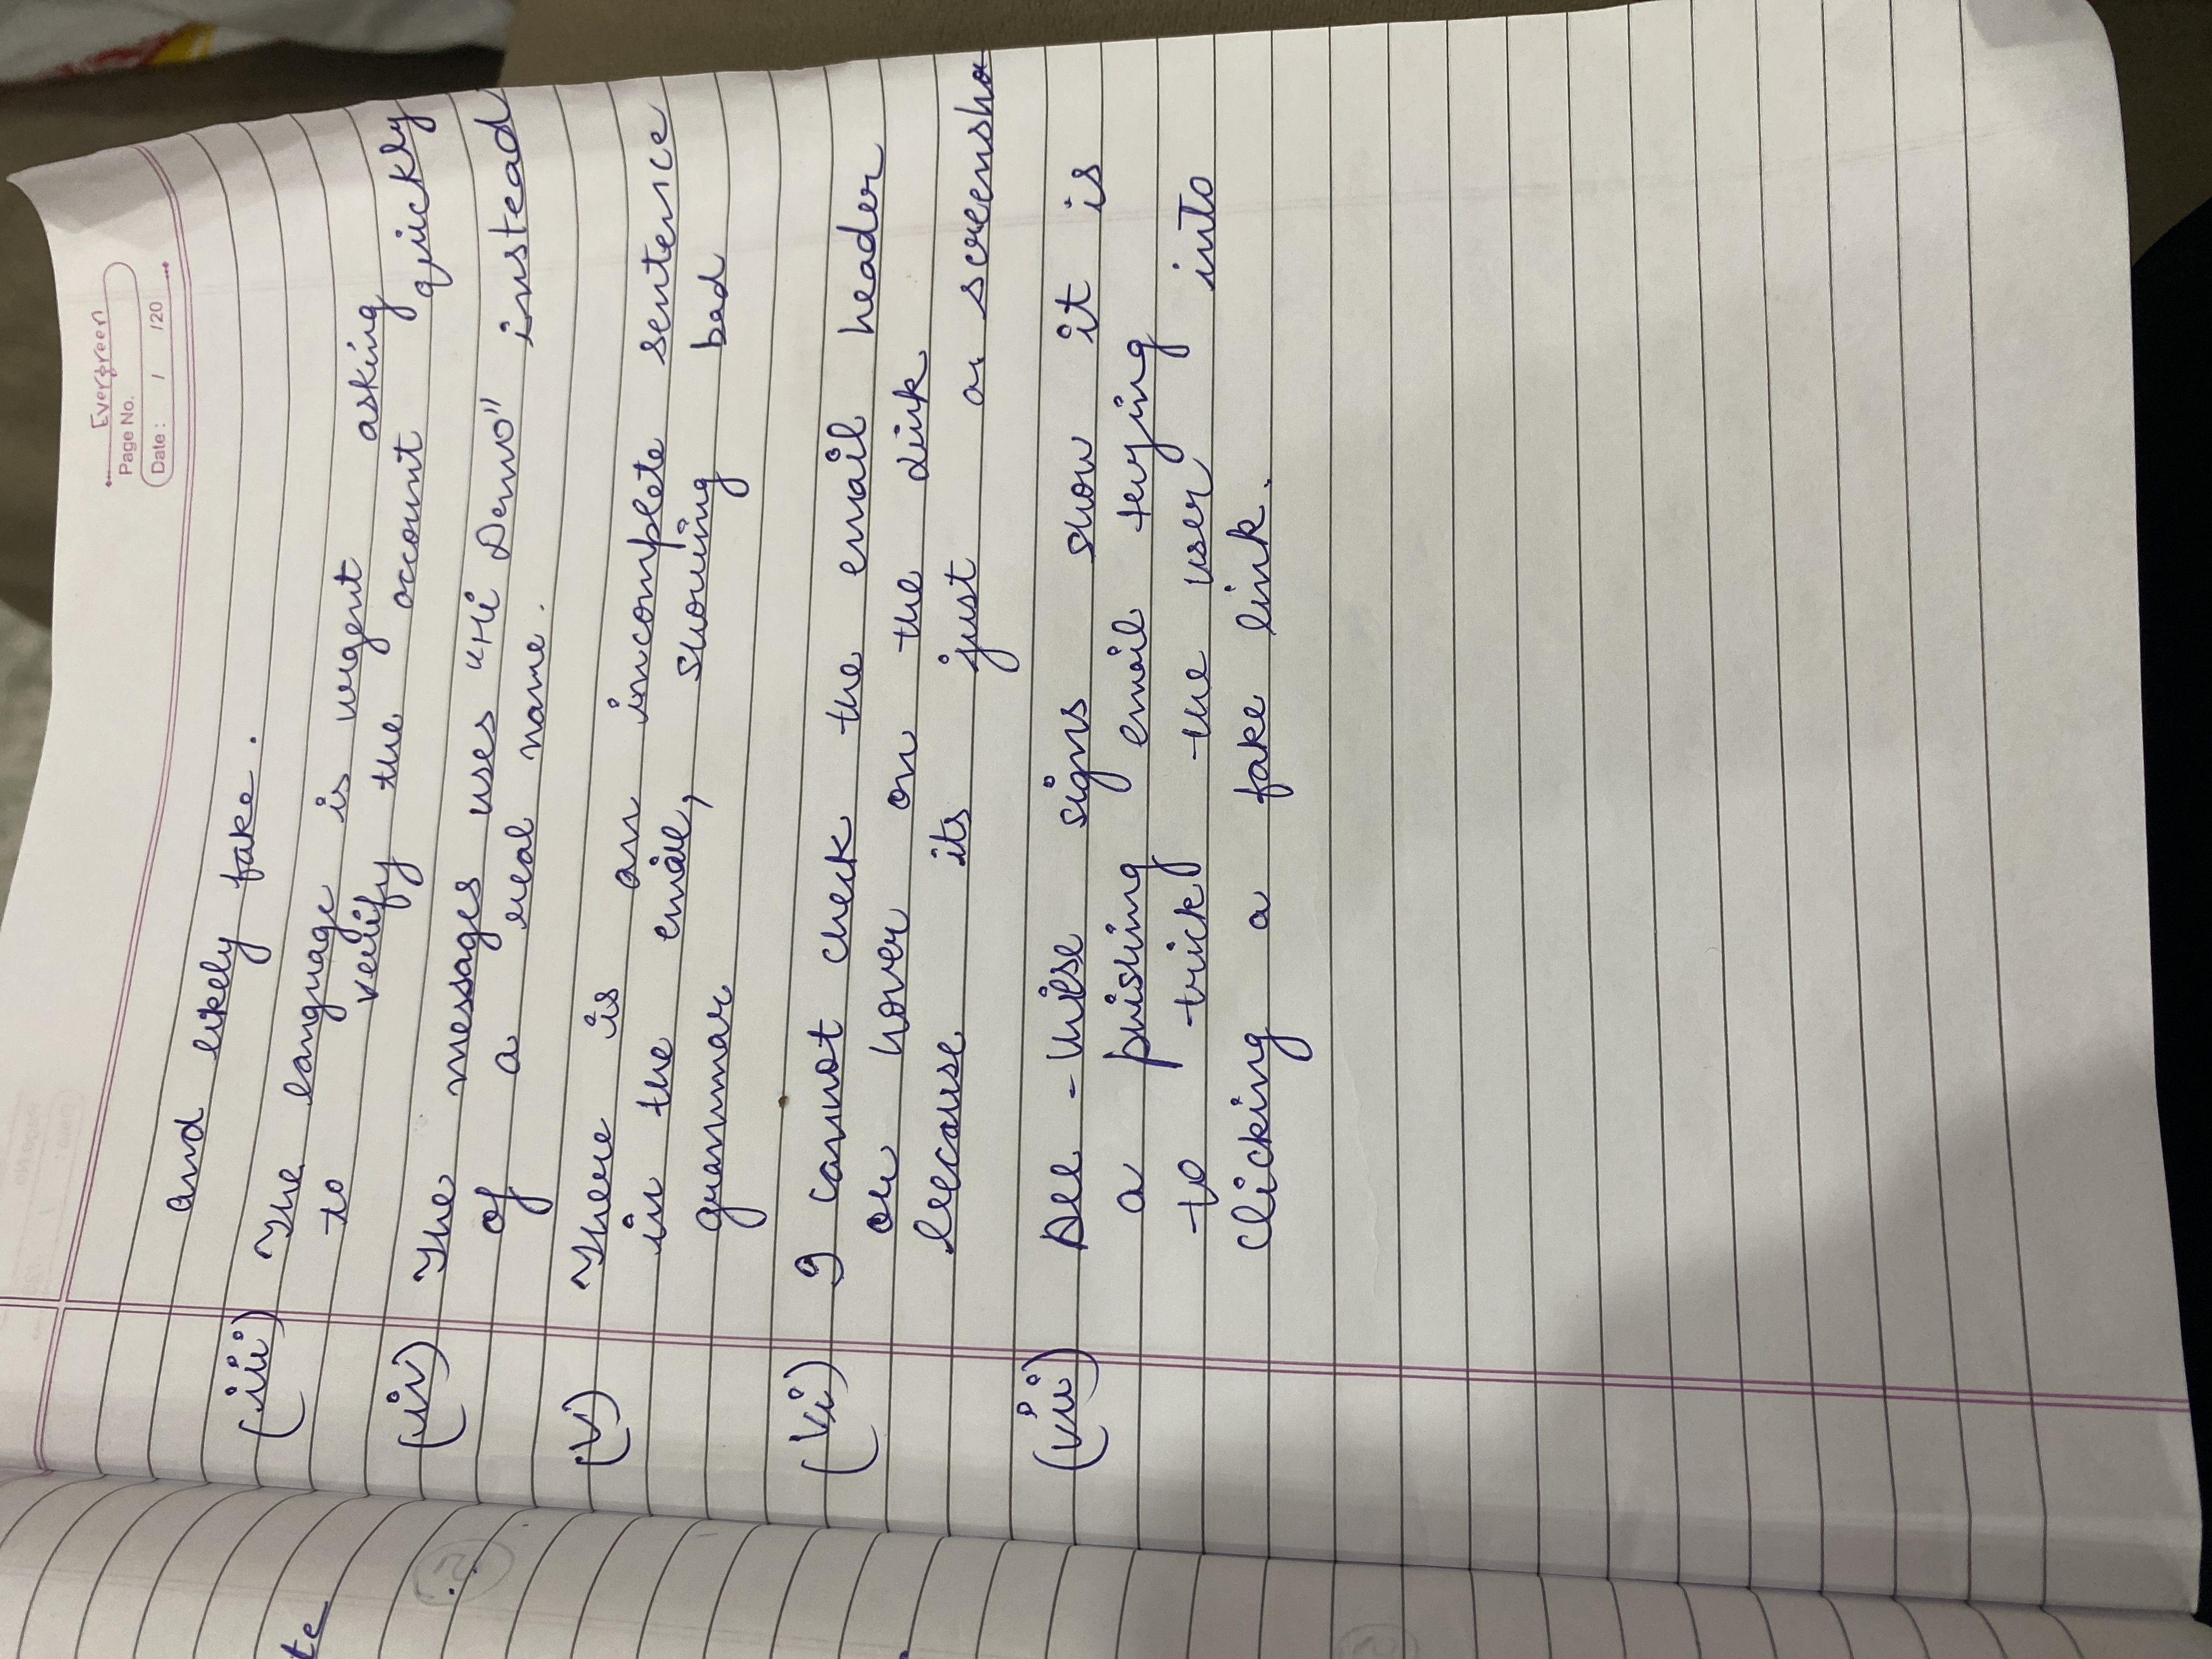 Evergreen
Page No.
Date : / /20
and likely fake.
(iii) The language is urgent asking
to verify the account quickly
(iv) The messages uses "Hi Demo" instead
of a real name.
(v) There is an incomplete sentence
in the email, showing bad
grammar
(vi) I cannot check the email header
or hover on the link
because its just a screensho
(vii) All these signs show it is
a phishing email trying
to trick the user into
clicking a fake link.
te